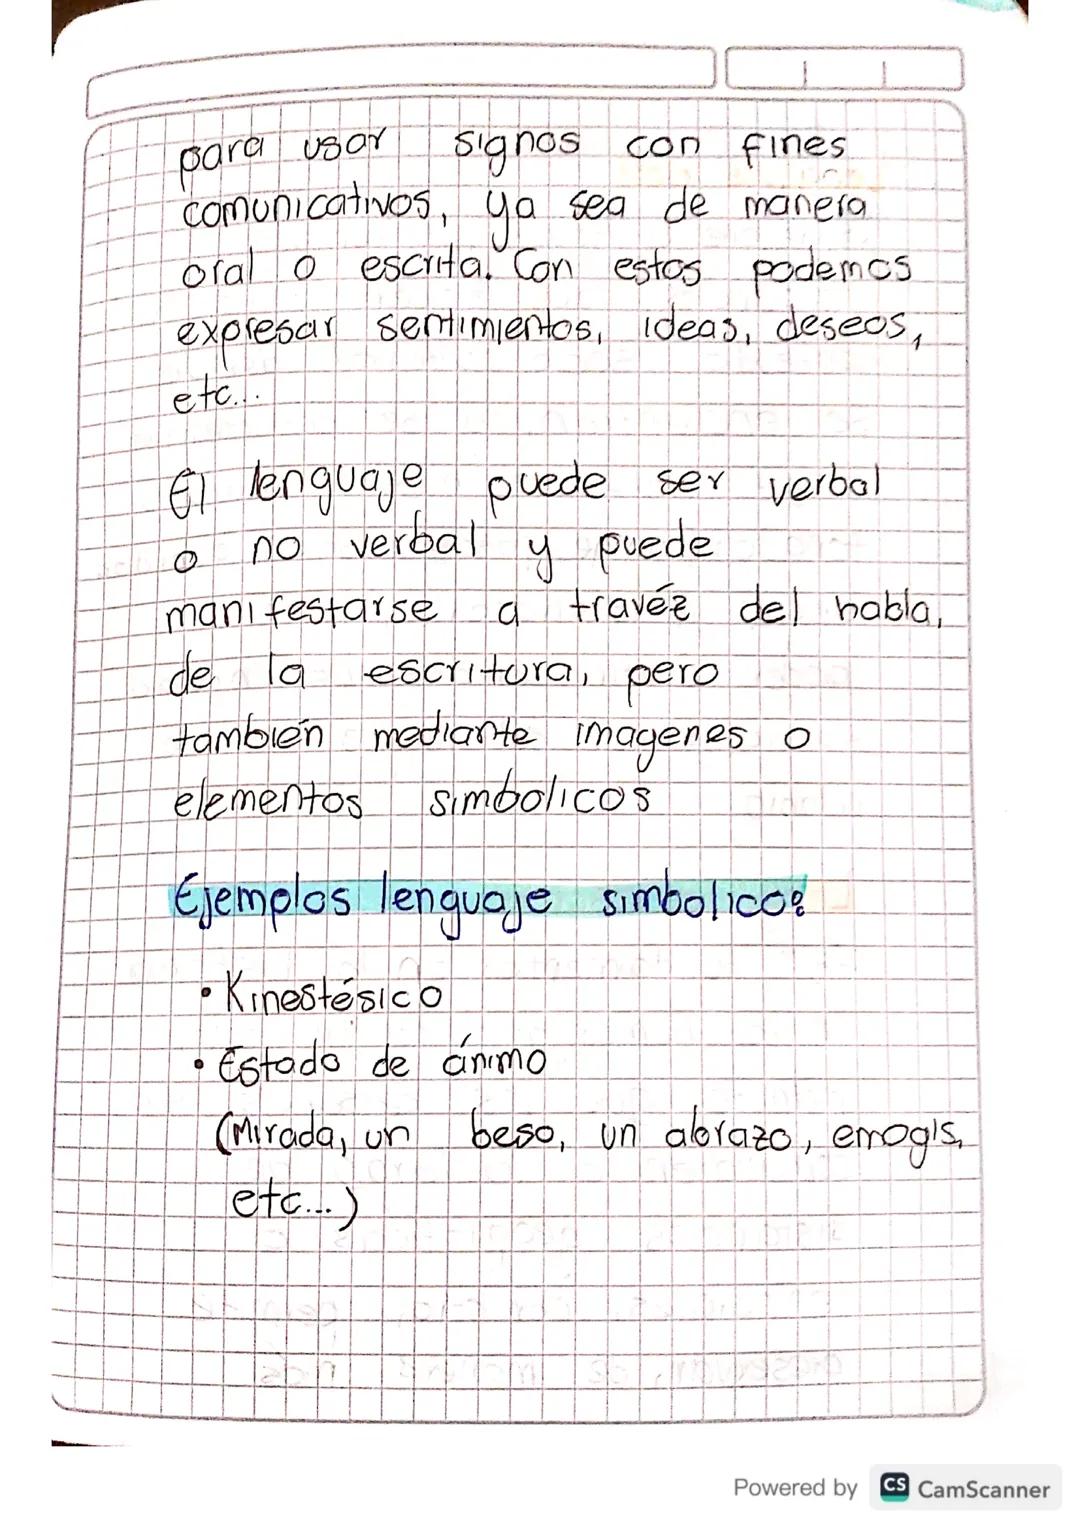 para usar signos con fines
comunicativos, ya sea de manera
oral o escrita. Con estos podemos
expresar sentimientos, ideas, deseos,
etc...
El lenguaje puede ser verbal
o no verbal y puede
manifestarse a travéz del habla,
de la escritura, pero
también mediante imagenes o
elementos simbolicos
Ejemplos lenguaje simbolico:
• Kinestésico
• Estado de ánimo
(Mirada, un beso, un abrazo, emogis,
etc...)
Powered by CS CamScanner